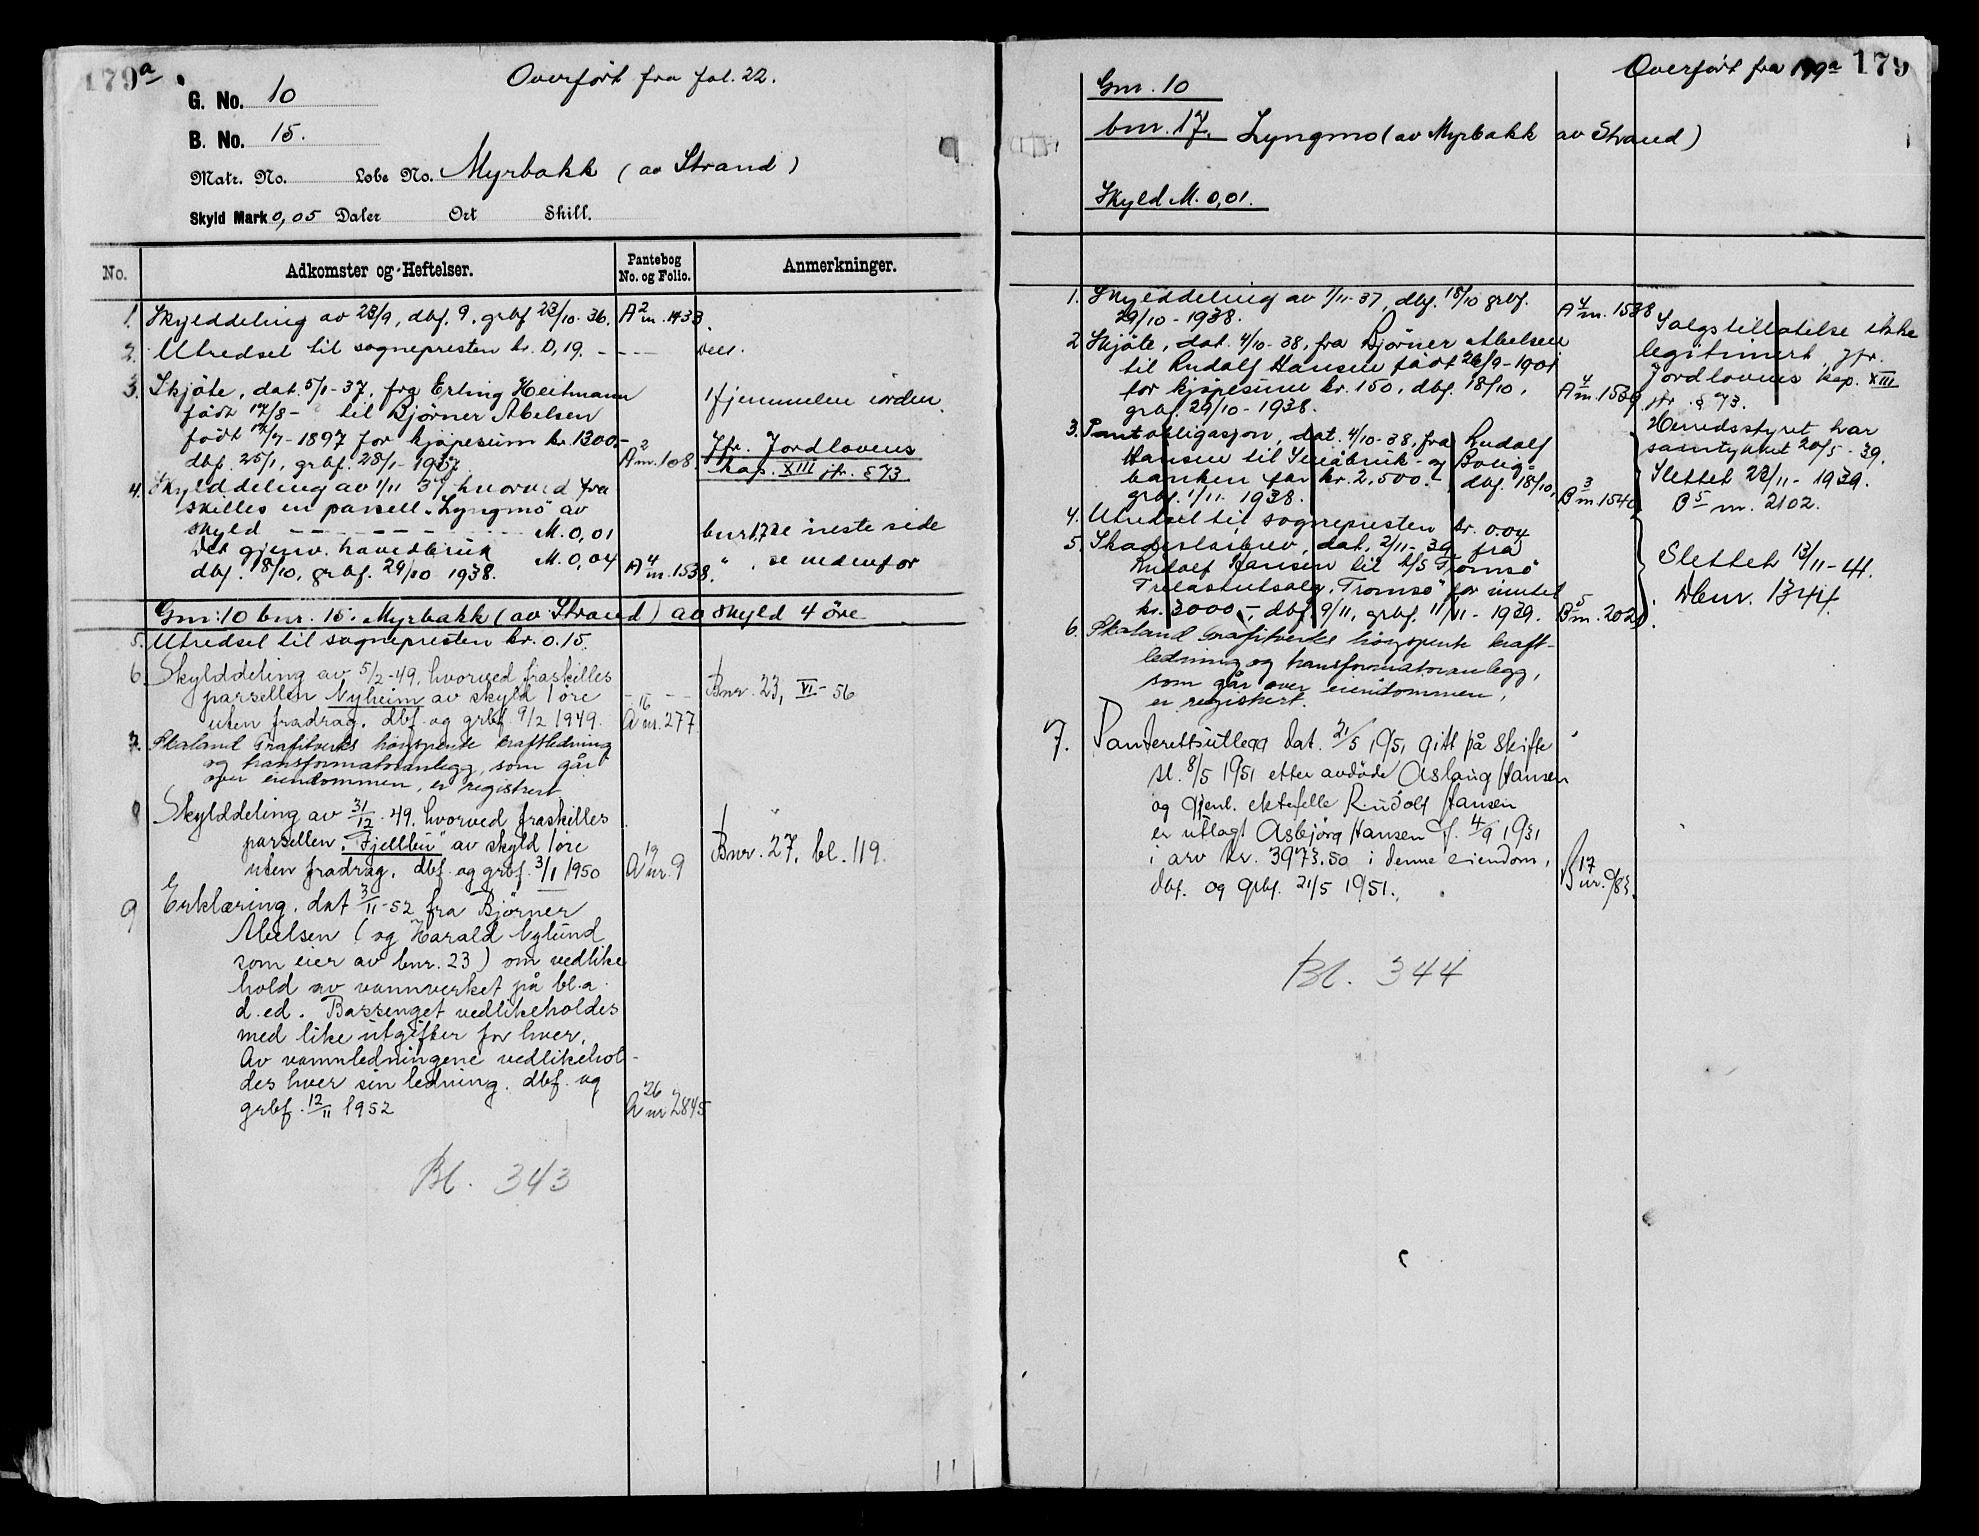 179a
Overført fra fol. 22.
G. No. 10
B. No. 15.
Matr. No. Løbe No. Myrbakk (av Strand)
Skyld Mark 0,05 Daler Ort Skill.
No. Adkomster og Heftelser. Pantebog No. og Folio. Anmerkninger.
1. Skylddeling av 23/9, dbf. 9, grbf 23/10-36. A2 nr. 1433.
2. Utredsel til sognepresten kr. 0,19. - - - -
3. Skjøte, dat. 5/1-37, fra Erling Heitmann
født 17/8- til Bjørner Abelsen
født 17/7-1897 for kjøpesum kr. 1300,-
dbf. 25/1, grbf. 28/1-1937. A2 nr. 108.
Hjemmelen iorden.
Jfr. Jordlovens
kap. XIII jfr. § 73
4. Skylddeling av 1/11 37, hvorved fra
skilles en parsell "Lyngmo" av
skyld - - - - - - - - M. 0,01 bnr 17, se neste side
Det gjenv. hovedbruk M. 0,04 " , se nedenfor
dbf. 18/10, grbf. 29/10 1938. A4 nr. 1538.
Gnr: 10 bnr. 15. Myrbakk (av Strand) av skyld 4 øre
5. Utredsel til sognepresten kr. 0.15.
6. Skylddeling av 5/2-49, hvorved fraskilles
parsellen Nyheim av skyld 1 øre - - - Bnr. 23, VI - 56
uten fradrag. dbf. og grbf. 9/2 1949. A16 nr. 277
7. Skaland Grafitverks høyspente kraftledning
og transformatoranlegg, som går
over eiendommen, er registrert
8 Skylddeling av 31/12-49. hvorved fraskilles
parsellen "Fjellbu" av skyld 1 øre Bnr. 27, bl. 119.
uten fradrag. dbf. og grbf. 3/1 1950 A19 nr. 9
9 Erklæring, dat 3/11-52 fra Bjørner
Abelsen (og Harald Nylund
som eier av bnr. 23) om vedlike
hold av vannverket på bl.a.
d. ed. Bassenget vedlikeholdes
med like utgifter for hver.
Av vannledningene vedlikehol-
des hver sin ledning. dbf. og
grbf. 12/11 1952 A26 nr 2845
Bl. 343
Overført fra 179a 179
Gnr. 10
bnr. 17. Lyngmo (av Myrbakk av Strand)
Skyld M. 0,01.
1. Skylddeling av 1/11-37, dbf. 18/10 grbf.
29/10-1938. A4 nr. 1538
2 Skjøte, dat. 4/10-38, fra Bjørner Abelsen
til Rudolf Hansen født 26/9-1901
for kjøpesum kr. 150, dbf. 18/10,
grbf. 29/10-1938. A4 nr. 1539
Salgstillatelse ikke
legitimert, jfr.
Jordlovens kap. XIII
jfr. § 73.
Herredsstyret har
samtykket 20/5-39.
3. Pantobligasjon, dat. 4/10-38, fra Rudolf
Hansen til Småbruk- og Bolig-
banken for kr. 2,500.- , dbf. 18/10,
grbf. 1/11. 1938. B3 nr. 1540
Slettet 22/11-1939.
B5 nr. 2102.
4. Utredsel til sognepresten kr. 0.04
5. Skadesløsbrev, dat. 2/11-39, fra
Rudolf Hansen til A/S Tromsø
Trelastutsalg, Tromsø, for inntil
kr. 3000,-, dbf. 9/11, grbf. 11/11-1939. B5 nr. 2020.
Slettet 13/11-41.
Dbnr. 1344.
6. Skaland Grafitverks høyspente kraft-
ledning og transformatoranlegg,
som går over eiendommen,
er registrert.
7. Panterettsutlegg dat. 21/5 1951 gitt på skifte
sl. 8/5 1951 etter avdøde Aslaug Hansen
og gjenl. ektefelle Rudolf Hansen
er utlagt Asbjørg Hansen f. 4/9 1931
i arv kr. 3973.50 i denne eiendom,
dbf. og grbf. 21/5 1951. B17 nr. 983.
Bl. 344